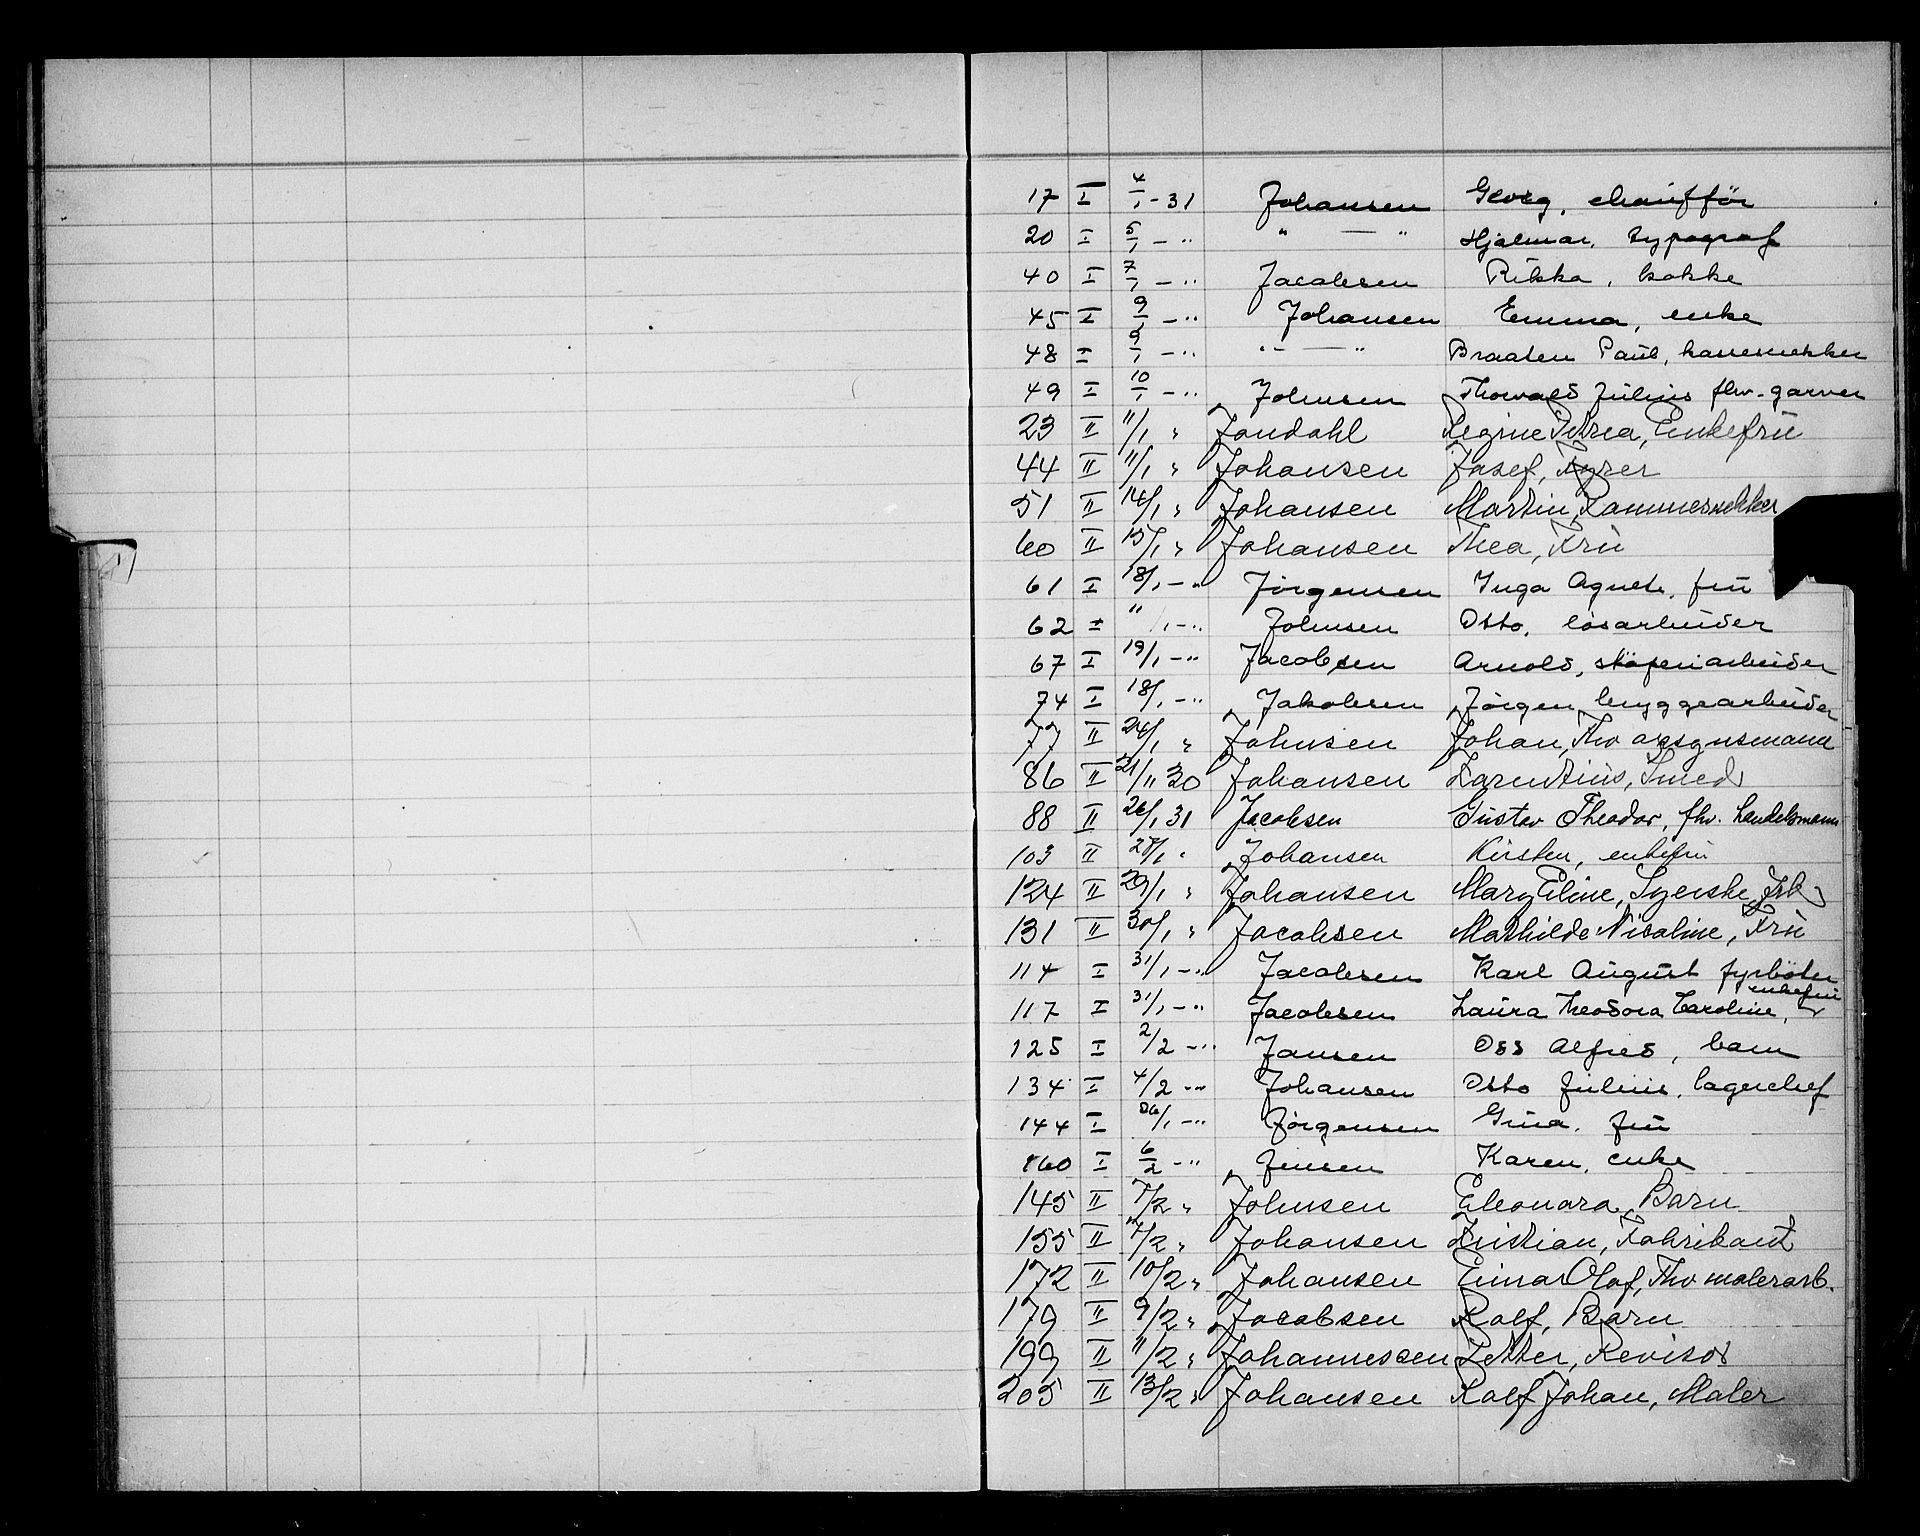 17 I 4/1 - 31 Johansen Georg, chaufför
20 I 5/1 - " " — " Hjalmar, typograf
40 I 7/1 - " Jacobsen Rikka, kokke
45 I 9/1 - " Johansen Emma, enke
48 I 9/1 - " " — " Braaten Paul,
49 I 10/1 - " Johnsen Thorvald Julius fhv. garver
23 II 11/1 " Jondahl Regine Petrea, Enkefru
44 II 11/1 " Johansen Josef, Fyrer
51 II 14/1 " Johansen Martin, Kammesnekker
60 II 15/1 " Johansen Thea, Fru
61 I 18/1 - " Jørgensen Inga Agnete, fru
62 I " /1 - " Johnsen Otto, løsarbeider
67 I 19/1 - " Jacobsen Arnold, støperiarbeider
74 I 18/1 - " Jakobsen Jørgen bryggearbeider
77 II 24/1 " Johnsen Johan, Fhv opsynsmand
86 II 21/11 30 Johansen Larentius, Smed
88 II 26/1 31 Jacobsen Gustav Theodor, fhv. handelsmann
103 II 27/1 " Johansen Kirsten, enkefru
124 II 29/1 " Johansen Mary Eline, Syerske, Frk
131 II 30/1 " Jacobsen Mathilde Nicoline, Fru
114 I 31/1 - " Jacobsen Karl August fyrbøter
117 I 31/1 - " Jacobsen Laura Theodora Caroline, enkefru
125 I 2/2 - " Jansen Odd Alfred, barn
134 I 4/2 - " Johansen Otto Julius, lagerchef
144 I 26/1 - " Jørgensen Gina, fru
160 I 6/2 - " Jensen Karen, enke
145 II 7/2 " Johnsen Eleonora, Barn
155 II 7/2 " Johansen Kristian, Fabrikant
172 II 10/2 " Johansen Einar Olaf, Fhv malerarb.
179 II 9/2 " Jacobsen Rolf, Barn
199 II 11/2 " Johannessen Petter, Revisor
205 II 13/2 " Johansen Rolf Johan, Maler